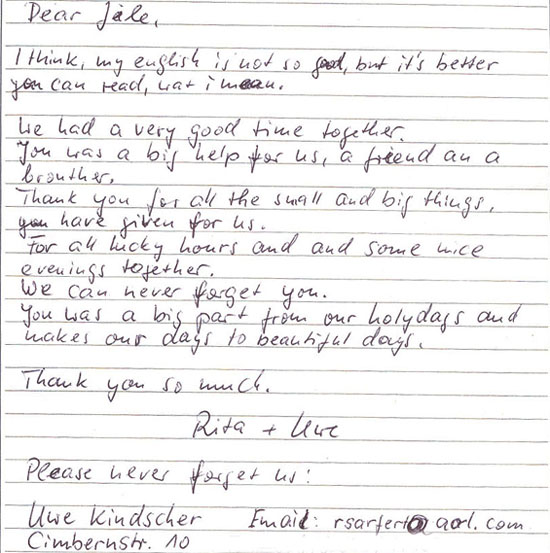 Dear Jale,
I think, my english is not so good, but it's better
you can read, wat i mean.
We had a very good time together.
You was a big help for us, a friend an a
brouther.
Thank you for all the small and big things,
you have given for us.
For all lucky hours and and some nice
evenings together.
We can never forget you.
You was a big part from our holydays and
makes our days to beautiful days.
Thank you so much.
Rita + Uwe
Please never forget us:
Uwe Kindscher Email: rsarfert@aol.com
Cimbernstr. 10